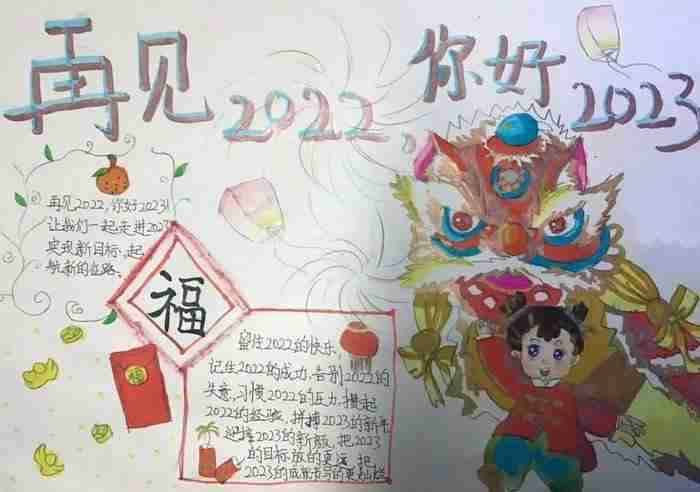 再见2022,你好2023
再见2022,你好2023!
让我们一起走进2023
实现新目标、起
航新的征路、
福
留住2022的快乐,
记住2022的成功,告别2022的
失意,习惯2022的压力,携起
2022的经验,拼搏2023的新年
迎接2023的新颜,把2023
的目标放的更远,把
2023的成就写的更